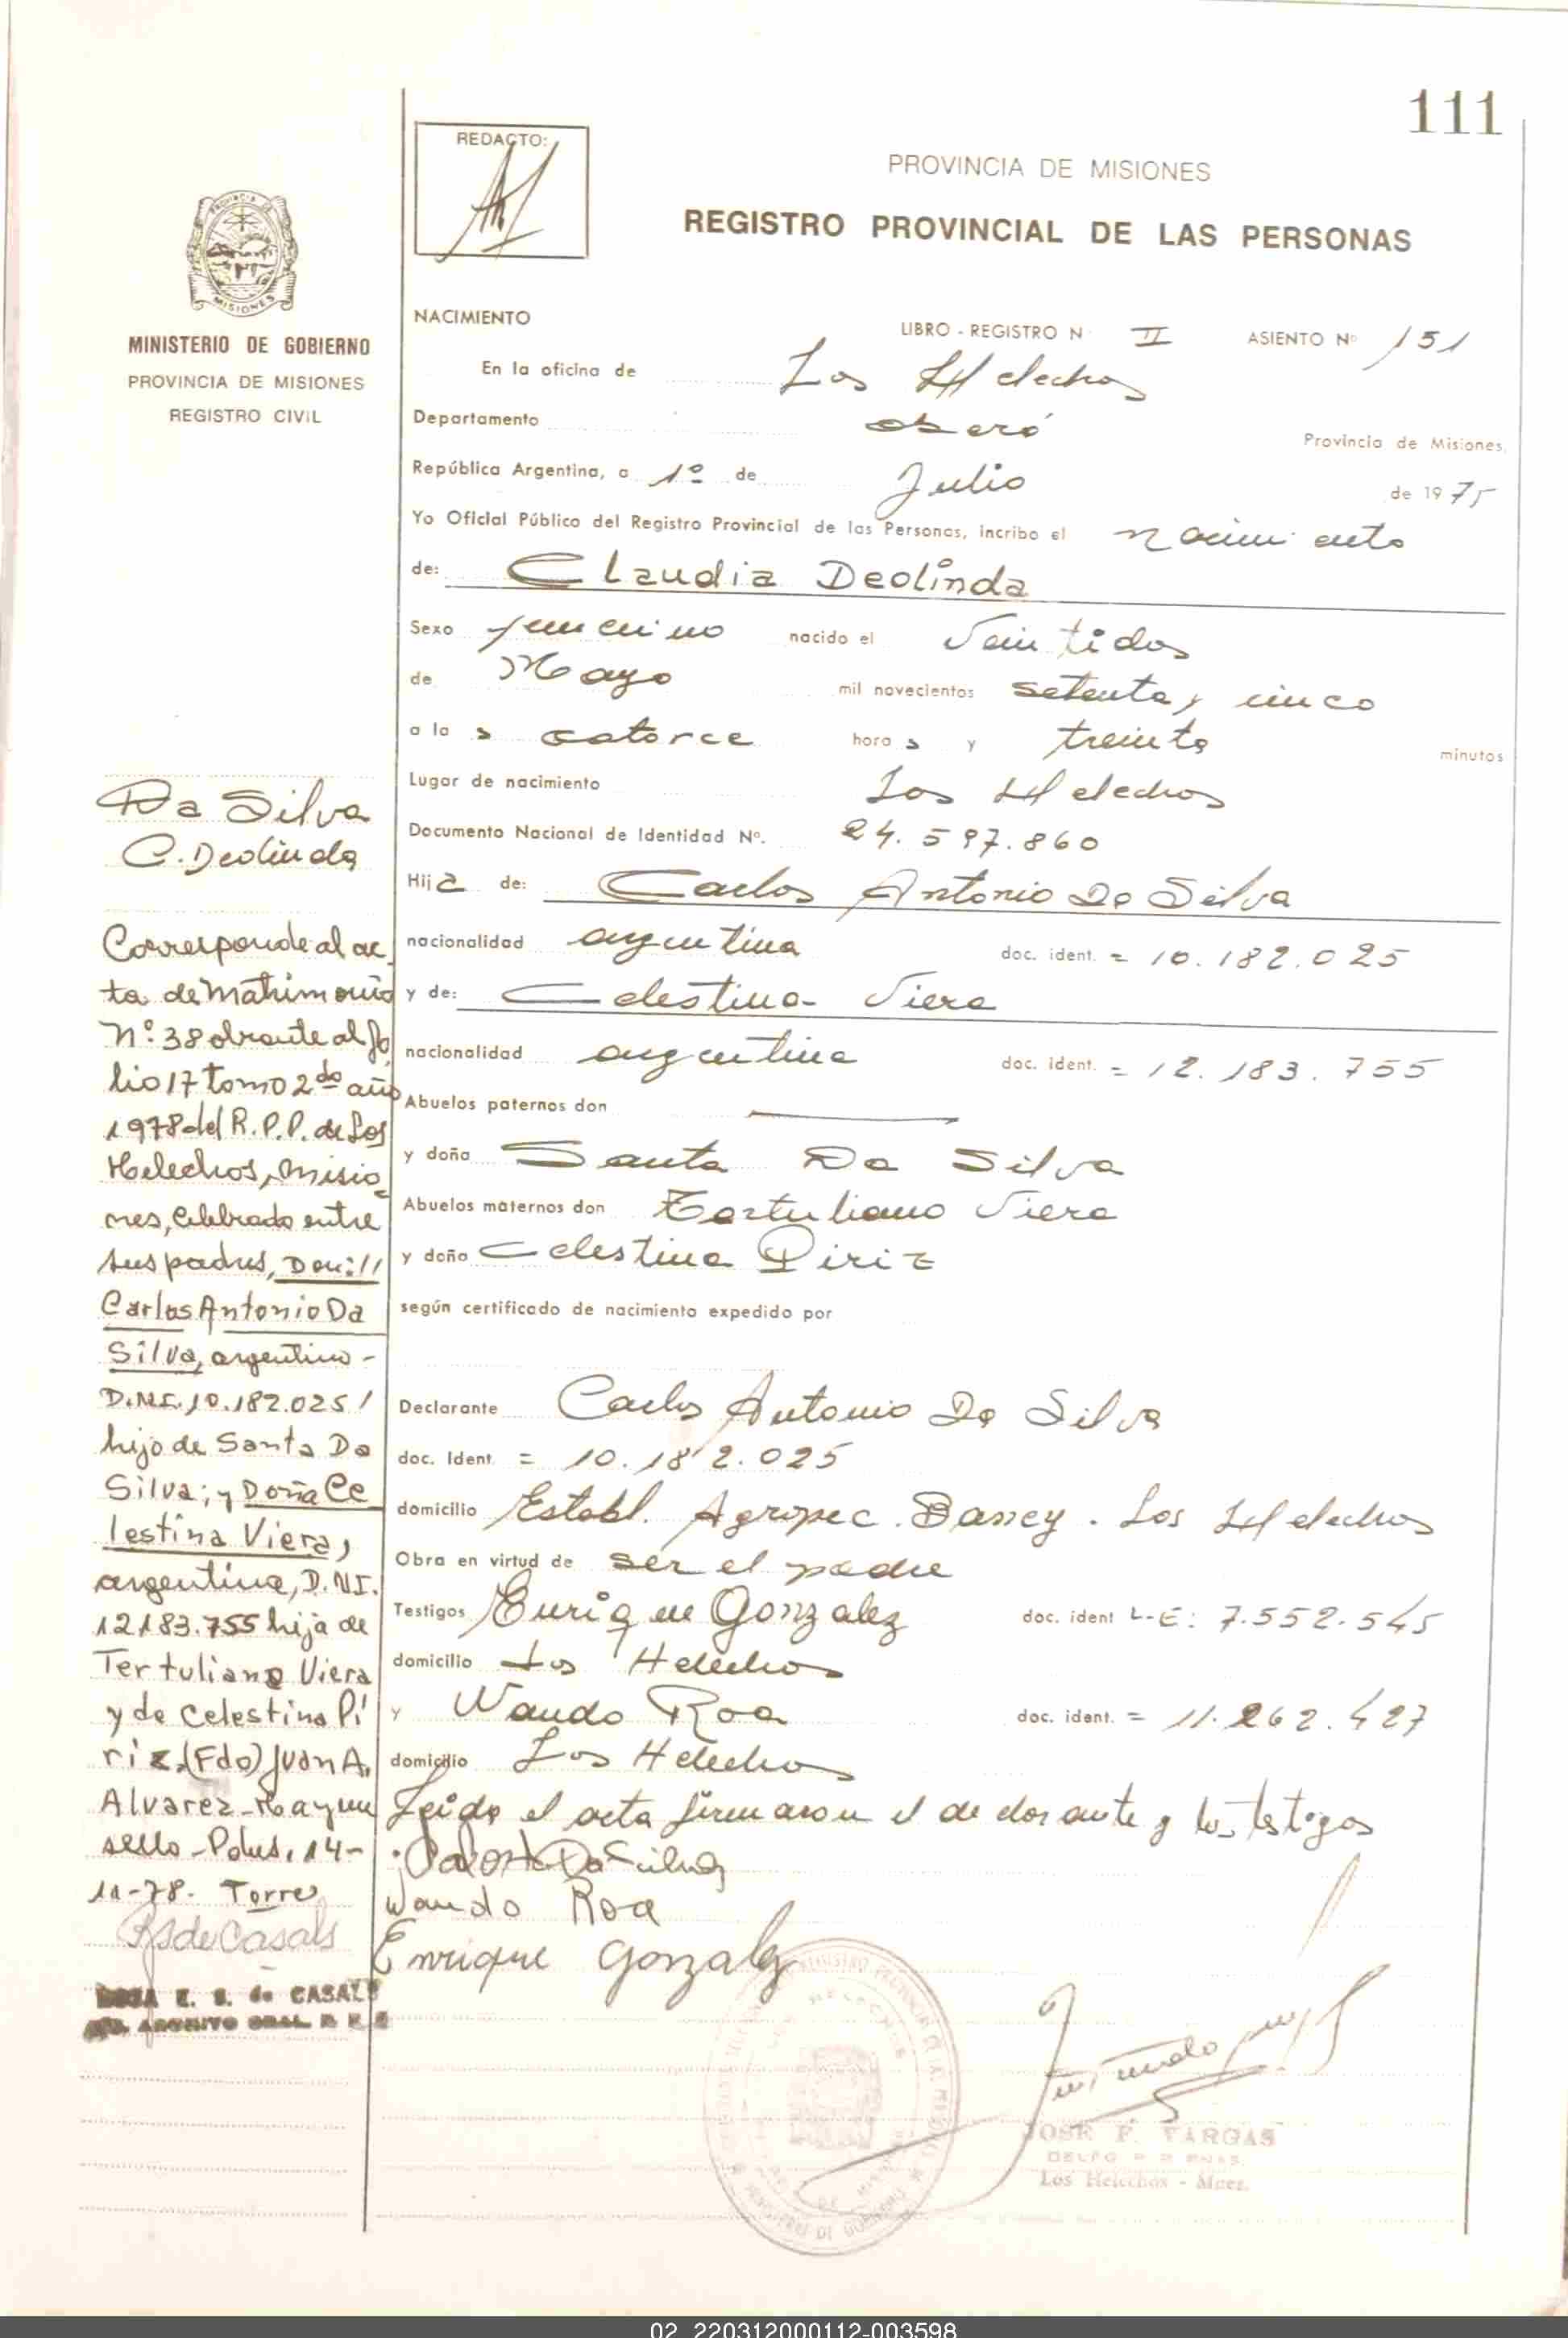 111
REDACTO:
PROVINCIA DE MISIONES
REGISTRO PROVINCIAL DE LAS PERSONAS
PROVINCIA DE
MISIONES
MINISTERIO DE GOBIERNO
PROVINCIA DE MISIONES
REGISTRO CIVIL
NACIMIENTO
LIBRO - REGISTRO N II ASIENTO Nº 151
En la oficina de Los Helechos
Departamento Oberá Provincia de Misiones.
República Argentina, a 1º de Julio de 1975
Yo Oficial Público del Registro Provincial de las Personas, incribo el nacimiento
de: Claudia Deolinda
Sexo femenino nacido el Veintidos
de Mayo mil novecientos setenta y cinco
a la s catorce hora s y treinta minutos
Lugar de nacimiento Los Helechos
Documento Nacional de Identidad Nº. 24.597.860
Hija de: Carlos Antonio Da Silva
nacionalidad argentina doc. ident. = 10.182.025
y de: Celestina Viera
nacionalidad argentina doc. ident. = 12.183.755
Abuelos paternos don
y doña Santa Da Silva
Abuelos maternos don Tertuliano Viera
y doña Celestina Piriz
según certificado de nacimiento expedido por
Declarante Carlos Antonio Da Silva
doc. Ident = 10.182.025
domicilio Establ. Agropec. Los Helechos
Obra en virtud de ser el padre
Testigos Enrique Gonzalez doc. ident L-E: 7.552.545
domicilio Los Helechos
y Wando Roa doc. ident. = 11.262.427
domicilio Los Helechos
Leida el acta firmaron el declarante y los testigos
Da Silva
Wando Roa
Enrique Gonzalez
JOSE F. VARGAS
Los Helechos - Mnes.
Da Silva
C. Deolinda
Corresponde al ac
ta de Matrimonio
Nº 38 obrante al fo
lio 17 tomo 2do año
1978 del R.P.P. de Los
Helechos, Misio
nes, celebrado entre
sus padres, Don://
Carlos Antonio Da
Silva, argentino -
D.N.I. 10.182.025/
hijo de Santa Da
Silva; y Doña Ce
lestina Viera,
argentina, D.NI.
12183.755 hija de
Tertuliano Viera
y de Celestina Pi
riz.(Fdo) Juan A.
Alvarez - Hay un
sello - Pdas, 14-
11-78. Torres
RS de Casals
ROSA E. S. de CASALS
ARCHIVO GRAL. R P P
02_220312000112-003598